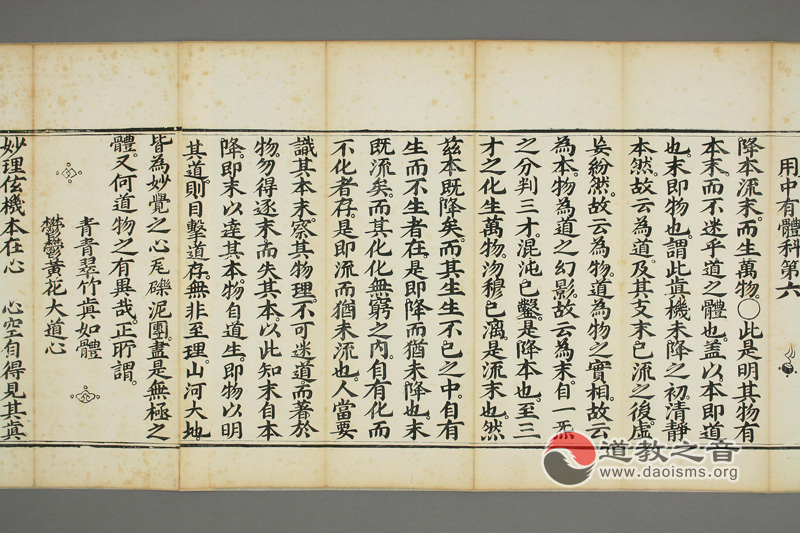 用中有體科第六
降本流末。而生萬物。〇此是明其物有
本末。而不迷乎道之體也。蓋以本即道
也。末即物也。謂此肯機未降之初。清靜
本然。故云為道。及其支末已流之後。虛
矣紛然。故云為物。道為物之實相。故云
為本。物為道之幻影。故云為末。自一炁
之分判三才。混沌已鑿。是降本也。至三
才之化生萬物。沕穆已漓。是流末也。然
茲本既降矣。而其生生不已之中。自有
生而不生者在。是即降而猶未降也。末
既流矣。而其化化無窮之內。自有化而
不化者存。是即流而猶未流也。人當要
識其本末。察其物理。不可迷道。而著於
物。勿得逐末而失其本。以此知末自本
降。即末以達其本。物自道生。即物以明
其道。則目擊道存。無非至理。山河大地
皆為妙覺之心。瓦礫泥團。盡是無極之
體。又何道物之有異哉。正所謂。
青青翠竹真如體
鬱鬱黃花大道心
妙理玄機本在心　心空自得見其真
道教之音
www.daoisms.org